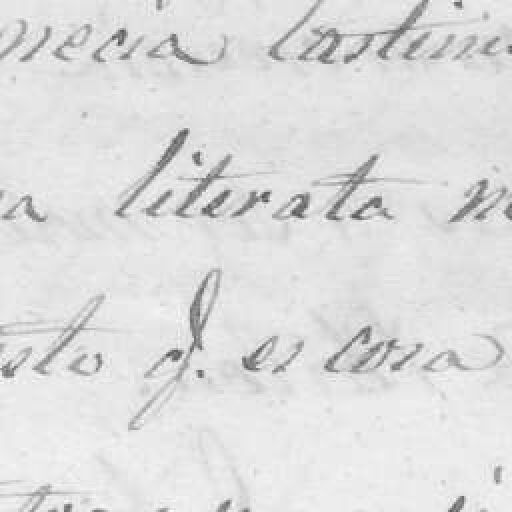 necia lastim
a literata
esto q. es cosa